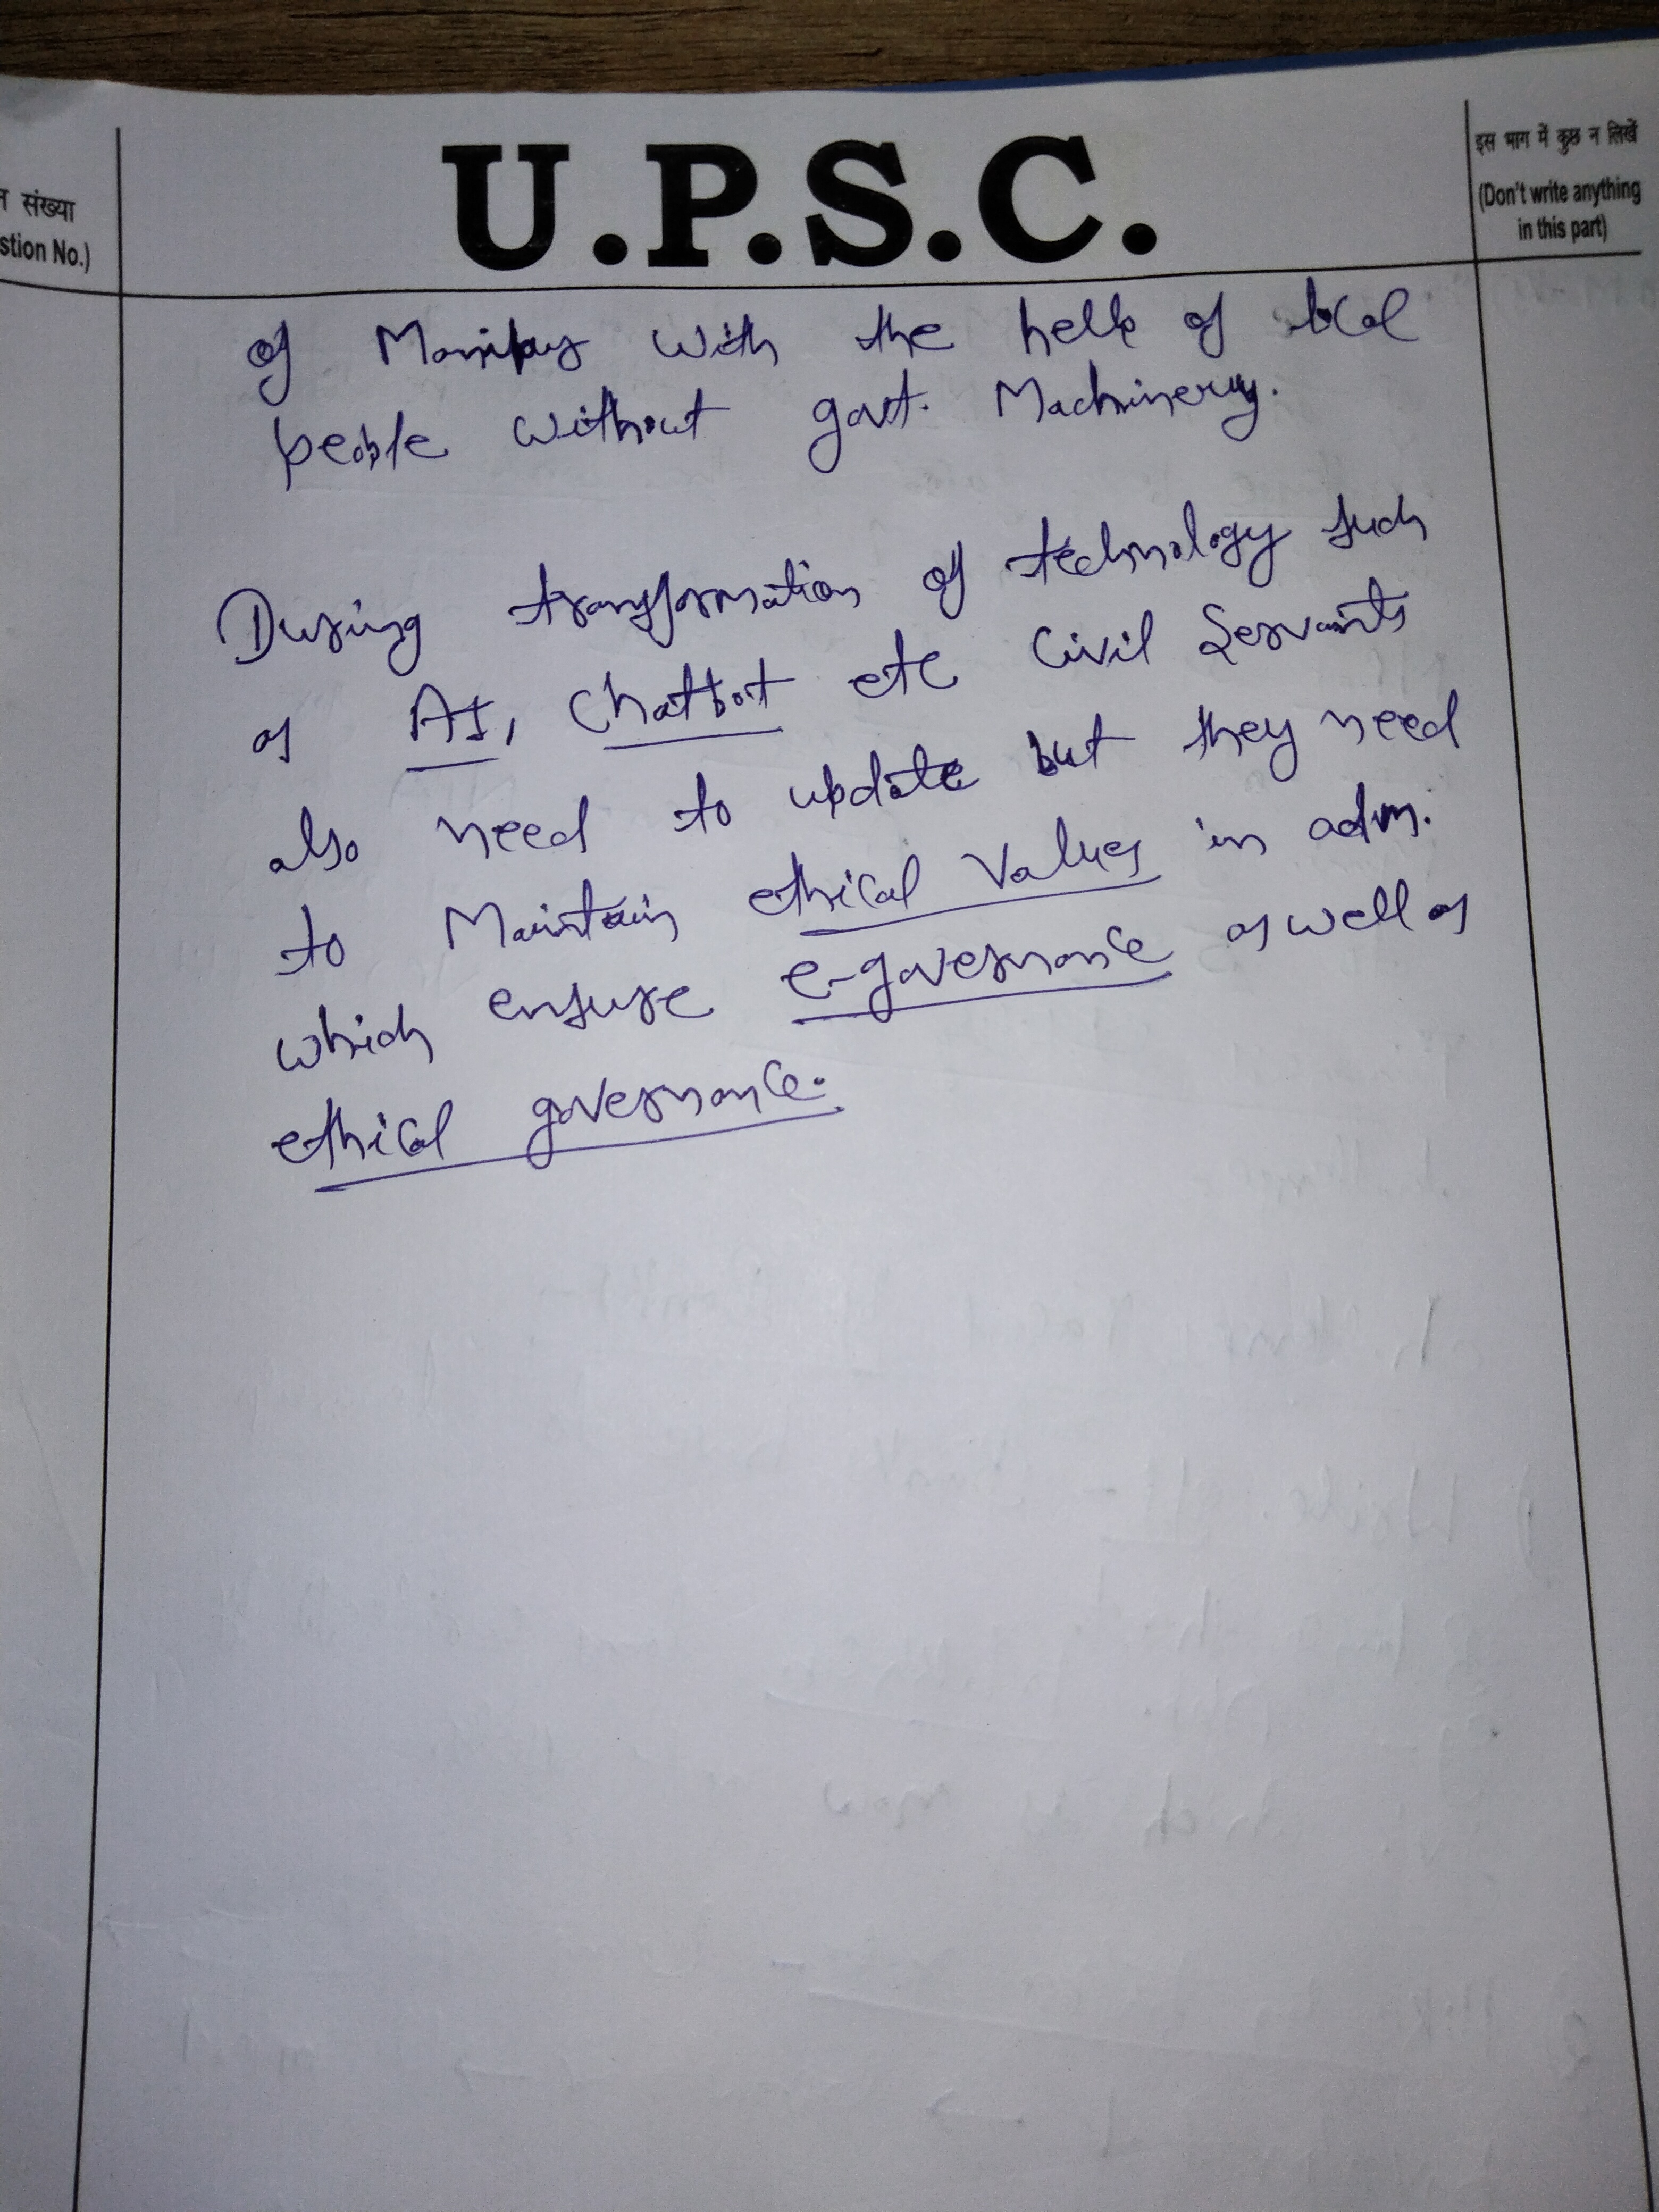 U.P.S.C.
संख्या
stion No.)
इस भाग में कुछ न लिखें
(Don't write anything
in this part)
of Manipur with the help of local
people without govt. Machinery.
During transformation of technology such
as AI, Chatbot etc Civil Servants
also need to update but they need
to Maintain ethical values in adm.
which ensure e-governance as well as
ethical governance.